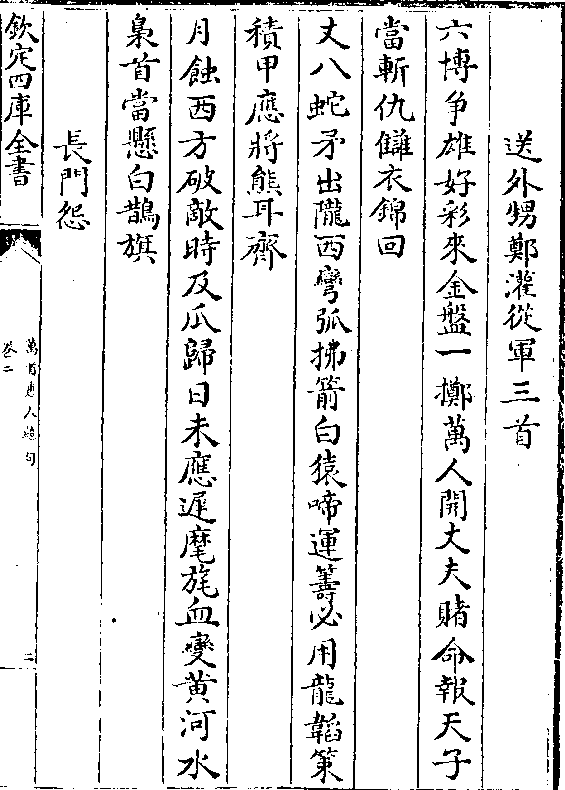 送外甥鄭灌從軍三首
六博争雄好彩來金盤一擲萬人開丈夫賭命報天子
當斬仇讎衣錦回
丈八蛇矛出隴西彎弧拂箭白猿啼運籌必用龍韜策
積甲應將熊耳齊
月蝕西方破敵時及瓜歸日未應遲麾旄血變黄河水
梟首當懸白鵲旗
長門怨
欽定四庫全書
萬首唐人絶句
卷二
二